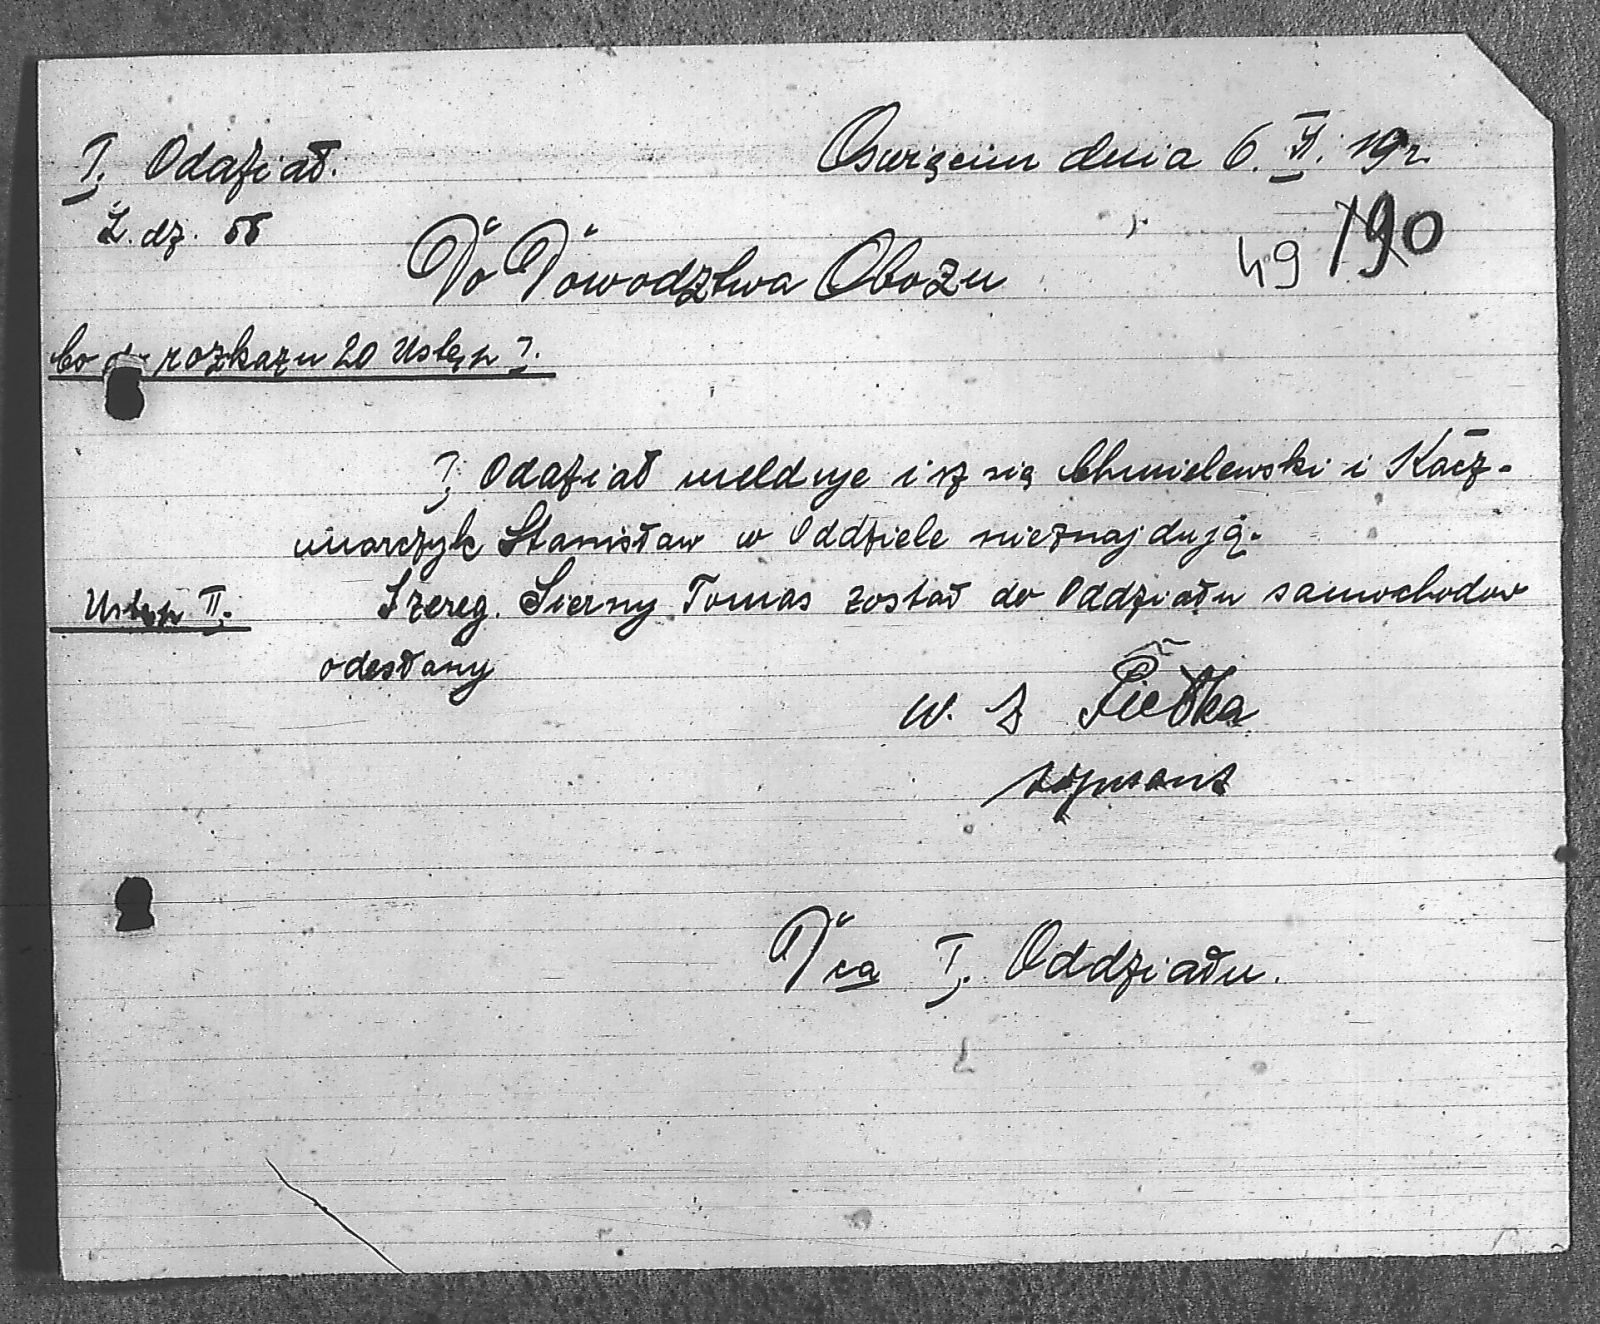 I. Oddział. Oswięcim dnia 6. VI. 19 r.
L. dz. 55 49 190
Do Dowodztwa Obozu
Co do rozkazu 20 Ustęp I.
I. Oddział melduje isz się Chmielewski i Kacz-
marczyk Stanisław w Oddziele nieznajdują.
Ustęp II. Szereg. Sierny Tomas został do Oddziału samochodow
odesłany
w. z Pietka
sierżant
Dca I. Oddziału.